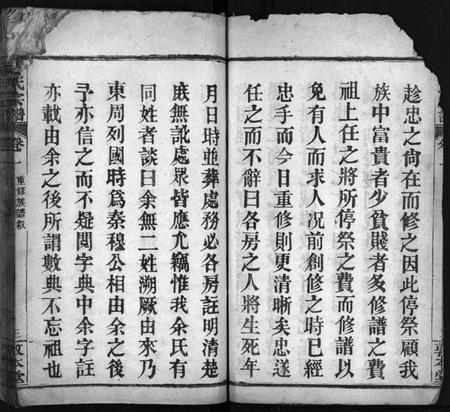 趁忠之尙在而修之因此停祭顧我
族中富貴者少貧賤者多修譜之費
祖上任之將所停祭之費而修譜以
免有人而求人况前創修之時已經
忠手而今日重修則更清晰矣忠遂
任之而不辭曰各房之人將生死年
月日時並葬處務必各房註明清楚
庶無訛處眾皆應允竊惟我余氏有
同姓者談曰余無二姓溯厥由來乃
東周列國時為秦穆公相由余之後
予亦信之而不疑閱字典中余字註
亦載由余之後所謂數典不忘祖也
氏宗譜 卷一 重修族譜叙 三 敦本堂
敦本堂